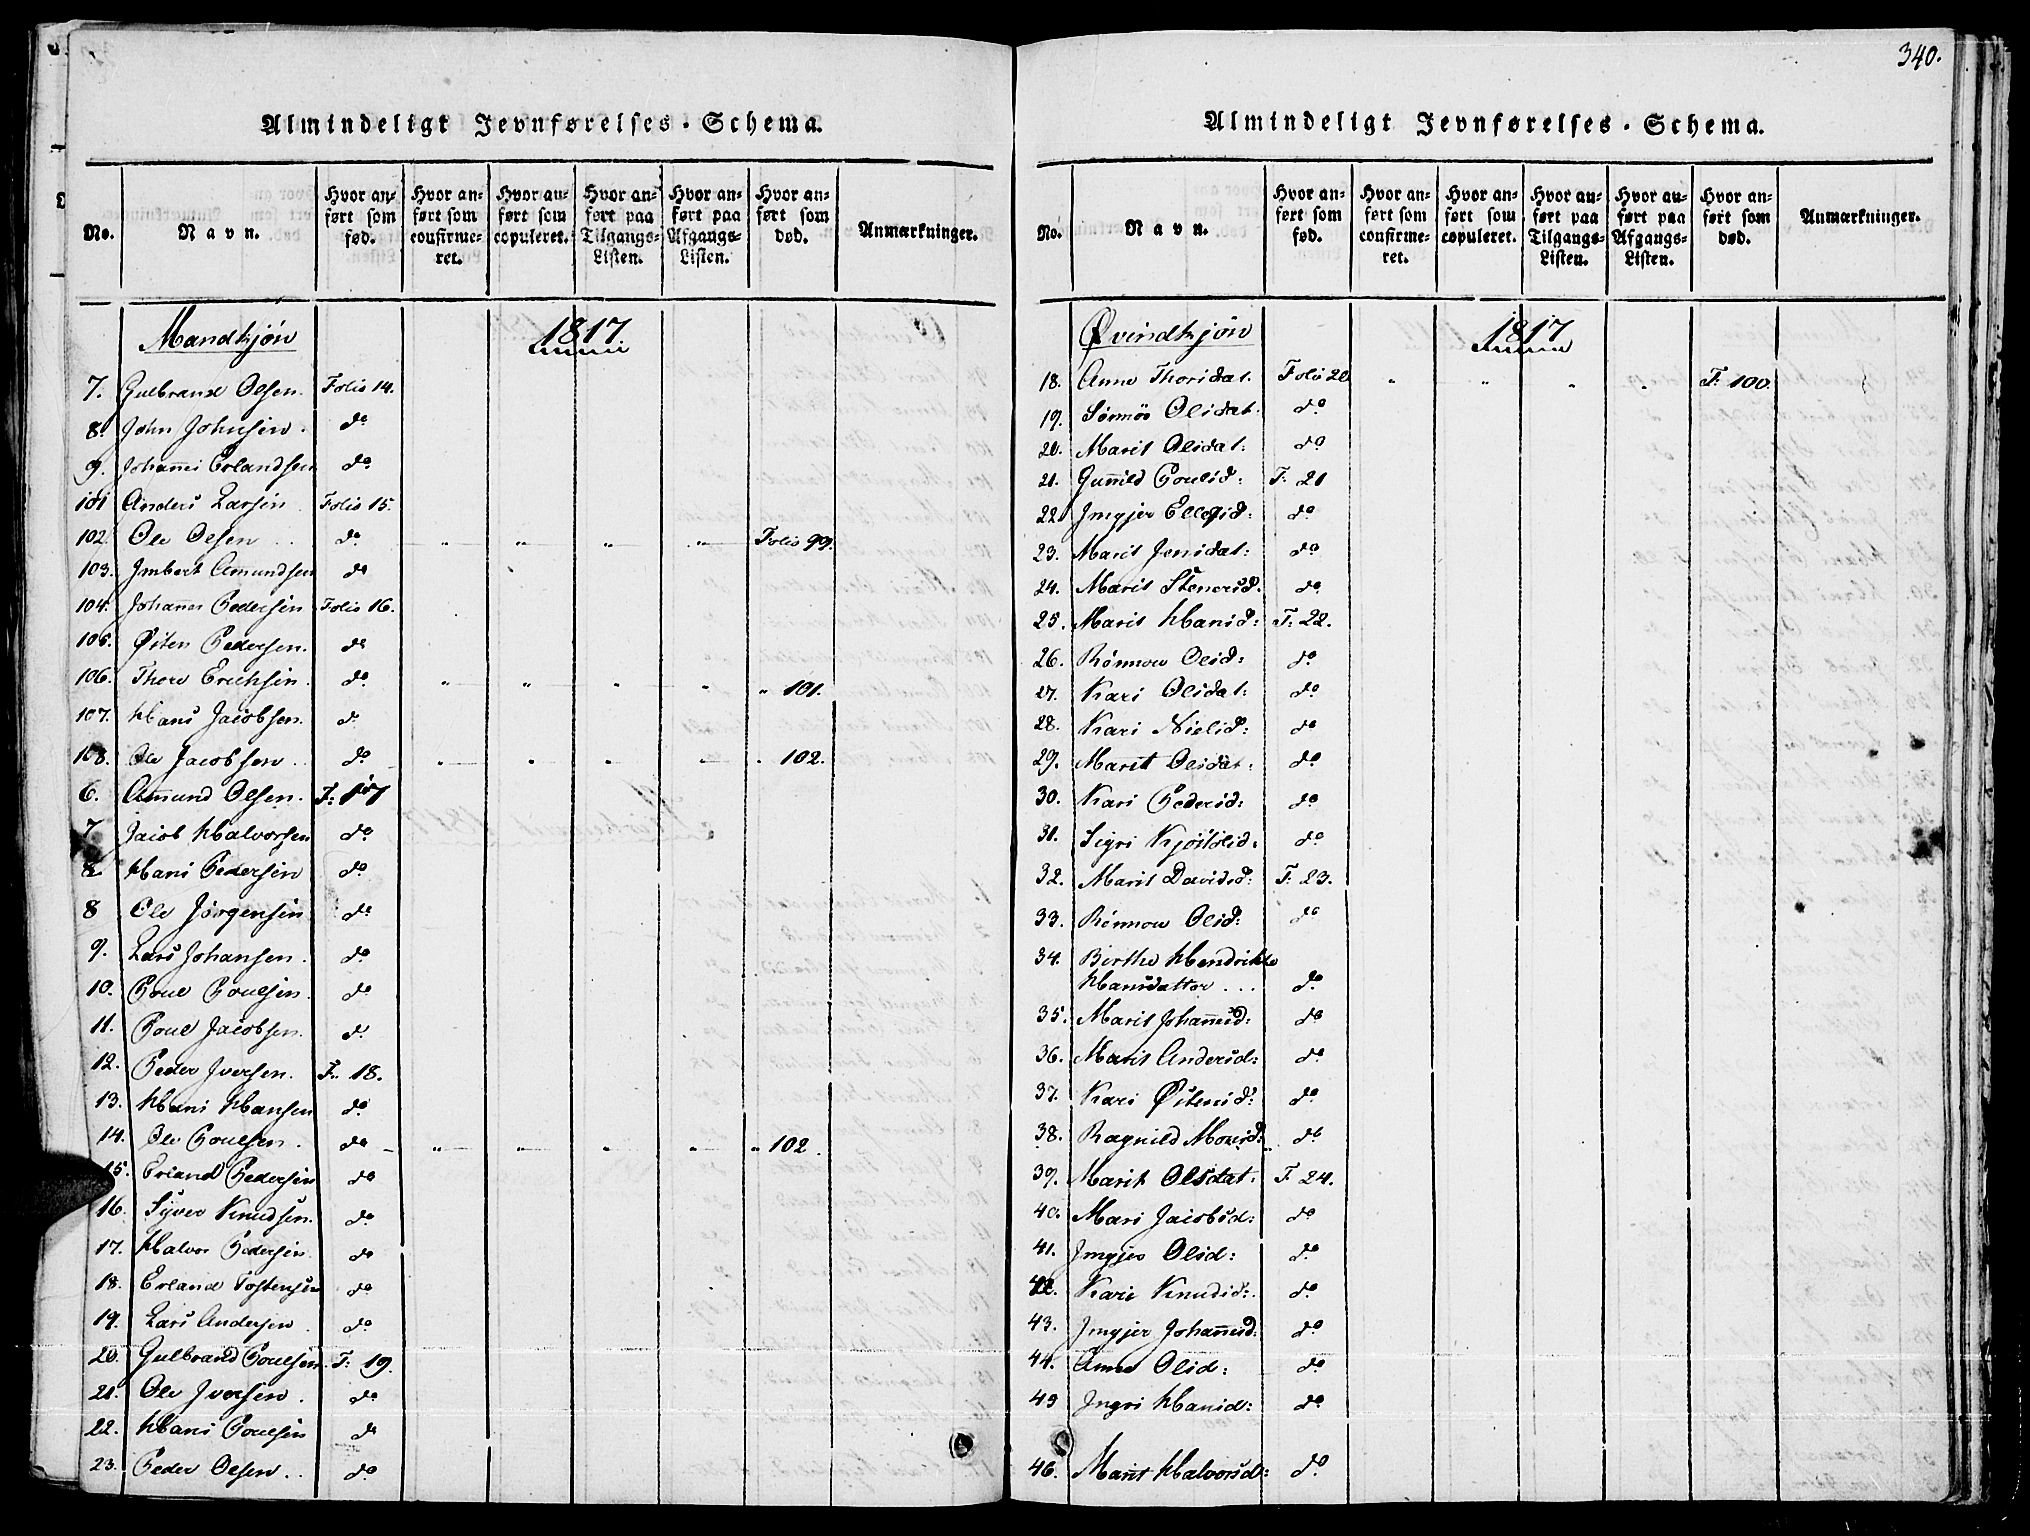 340.
Almindeligt Jevnførelses-Schema.
No.
Navn.
Hvor anført som fød.
Hvor anført som confirmeret.
Hvor anført som copuleret.
Hvor anført paa Tilgangs-Listen.
Hvor anført paa Afgangs-Listen.
Hvor anført som død.
Anmærkninger.
Mandkjøn 1817
7. Gulbrand Olsen. Folio 14.
8. John Johnsen. do
9. Johannes Erlandsen do
101 Anders Larsen Folio 15.
102. Ole Olsen . . do " " " " Folio 99.
103. Imbert Amundsen do
104. Johannes Pedersen Folio 16.
105. Østen Pedersen. do
106. Thore Erichsen. do " " " " " 101.
107. Hans Jacobsen. do
108. Ole Jacobsen. . do " " " " " 102.
6. Amund Olsen. F: 17
7 Jacob Halvorsen do
8 Hans Pedersen do
8 Ole Jørgensen do
9. Lars Johansen. do
10. Poul Poulsen. do
11. Poul Jacobsen. do
12. Peder Iversen. F. 18.
13. Hans Hansen do
14. Ole Poulsen. do " " " " " 102.
15. Erland Pedersen do
16. Syver Knudsen. do
17. Halvor Pedersen do
18. Erland Tostensen do
19. Lars Andersen do
20. Gulbrand Poulsen. F: 19.
21. Ole Iversen. do
22. Hans Poulsen do
23. Peder Olsen. . do
Almindeligt Jevnførelses-Schema.
No.
Navn.
Hvor anført som fød.
Hvor anført som confirmeret.
Hvor anført som copuleret.
Hvor anført paa Tilgangs-Listen.
Hvor anført paa Afgangs-Listen.
Hvor anført som død.
Anmærkninger.
Qvindkjøn 1817
18. Anne Thorsdat. Folio 20 " " " " F. 100.
19. Olsdat. do
20. Marit Olsdat. do
21. Gunild Poulsd: F. 21
22. Ingjer Ellefsd: do
23. Marit Jensdat: do
24. Marit Stenersd. do
25. Marit Hansd: F: 22.
26. Rønnow Olsd: do
27. Kari Olsdat: do
28. Kari Nielsd: do
29. Marit Olsdat: do
30. Kari Pedersd: do
31. Sigri Kjøstolsd: do
32. Marit Davidsd: F. 23.
33. Rønnow Olsd: do
34. Berthe Hendrikke
Hansdatter . . . do
35. Marit Johannesd: do
36. Marit Andersd: do
37. Kari Østensd: do
38. Ragnild do
39. Marit Olsdat. F. 24.
40. Mari Jacobsd: do
41. Ingjer Olsd: do
42. Kari Knudsd: do
43. Ingjer Johannesd: do
44. Anne Olsd: do
45 Ingri Hansd: do
46. Marit Halvorsd: do